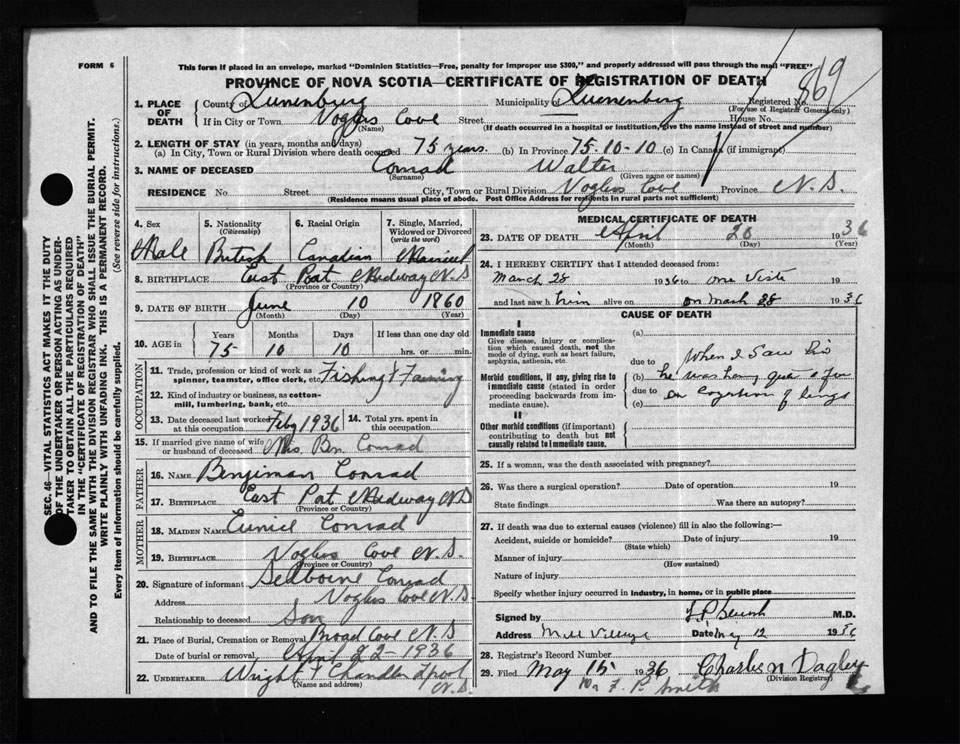 FORM 6
This form if placed in an envelope, marked "Dominion Statistics—Free, penalty for improper use $300," and properly addressed will pass through the mail "FREE"
PROVINCE OF NOVA SCOTIA—CERTIFICATE OF REGISTRATION OF DEATH
869
1. PLACE OF DEATH County of Lunenburg Municipality of Lunenburg Registered No. (For use of Registrar General only)
If in City or Town Voglers Cove (Name) Street House No.
(If death occurred in a hospital or institution, give the name instead of street and number)
2. LENGTH OF STAY (in years, months and days)
(a) In City, Town or Rural Division where death occurred 75 years (b) In Province 75-10-10 (c) In Canada (if immigrant)
3. NAME OF DECEASED Conrad (Surname) Walter (Given name or names)
RESIDENCE No. Street City, Town or Rural Division Voglers Cove Province N.S.
(Residence means usual place of abode. Post Office Address for residents in rural parts not sufficient)
4. Sex Male
5. Nationality (Citizenship) British
6. Racial Origin Canadian
7. Single, Married, Widowed or Divorced (write the word) Married
8. BIRTHPLACE East Port Medway N.S (Province or Country)
9. DATE OF BIRTH June (Month) 10 (Day) 1860 (Year)
10. AGE in Years 75 Months 10 Days 10 If less than one day old hrs. or min.
OCCUPATION
11. Trade, profession or kind of work as spinner, teamster, office clerk, etc. Fishing & Farming
12. Kind of industry or business, as cotton-mill, lumbering, bank, etc.
13. Date deceased last worked at this occupation Feb 1936
14. Total yrs. spent in this occupation
15. If married give name of wife or husband of deceased Mrs. Ben Conrad
FATHER
16. NAME Benjiman Conrad
17. BIRTHPLACE East Port Medway NS (Province or Country)
MOTHER
18. MAIDEN NAME Conrad
19. BIRTHPLACE Voglers Cove N.S. (Province or Country)
20. Signature of informant Conrad
Address Voglers Cove N.S
Relationship to deceased Son
21. Place of Burial, Cremation or Removal Broad Cove N.S
Date of burial or removal April 22-1936
22. UNDERTAKER Wright & Chandler Lpool N.S. (Name and address)
MEDICAL CERTIFICATE OF DEATH
23. DATE OF DEATH April (Month) 20 (Day) 1936 (Year)
24. I HEREBY CERTIFY that I attended deceased from:
March 28 1936 to one visit 19
and last saw him alive on March 28 1936
CAUSE OF DEATH
I
Immediate cause
Give disease, injury or complication which caused death, not the mode of dying, such as heart failure, asphyxia, asthenia, etc.
Morbid conditions, if any, giving rise to immediate cause (stated in order proceeding backwards from immediate cause).
II
Other morbid conditions (if important) contributing to death but not causally related to immediate cause.
(a)
due to When I saw
(b) he was
due to of lungs
(c)
25. If a woman, was the death associated with pregnancy?
26. Was there a surgical operation? Date of operation 19
State findings Was there an autopsy?
27. If death was due to external causes (violence) fill in also the following:—
Accident, suicide or homicide? (State which) Date of injury 19
Manner of injury (How sustained)
Nature of injury
Specify whether injury occurred in industry, in home, or in public place
Signed by M.D.
Address Mill Village Date May 12 1936
28. Registrar's Record Number
29. Filed May 15 1936 Charles N Dagley (Division Registrar)
Smith
SEC. 46—VITAL STATISTICS ACT MAKES IT THE DUTY OF THE UNDERTAKER OR PERSON ACTING AS UNDERTAKER TO OBTAIN ALL THE PARTICULARS REQUIRED IN THE "CERTIFICATE OF REGISTRATION OF DEATH" AND TO FILE THE SAME WITH THE DIVISION REGISTRAR WHO SHALL ISSUE THE BURIAL PERMIT.
WRITE PLAINLY WITH UNFADING INK. THIS IS A PERMANENT RECORD.
Every item of information should be carefully supplied. (See reverse side for instructions.)